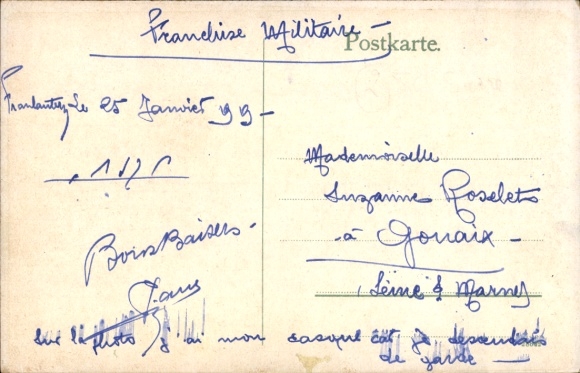 Franchise Militaire -
Postkarte.
Le 25 Janvier 1919 -
Mademoiselle
Suzanne Roselets
à Gouaix -
Seine & Marne
Bons Baisers -
Sur la photo j'ai mon casque car je descendais
de garde -